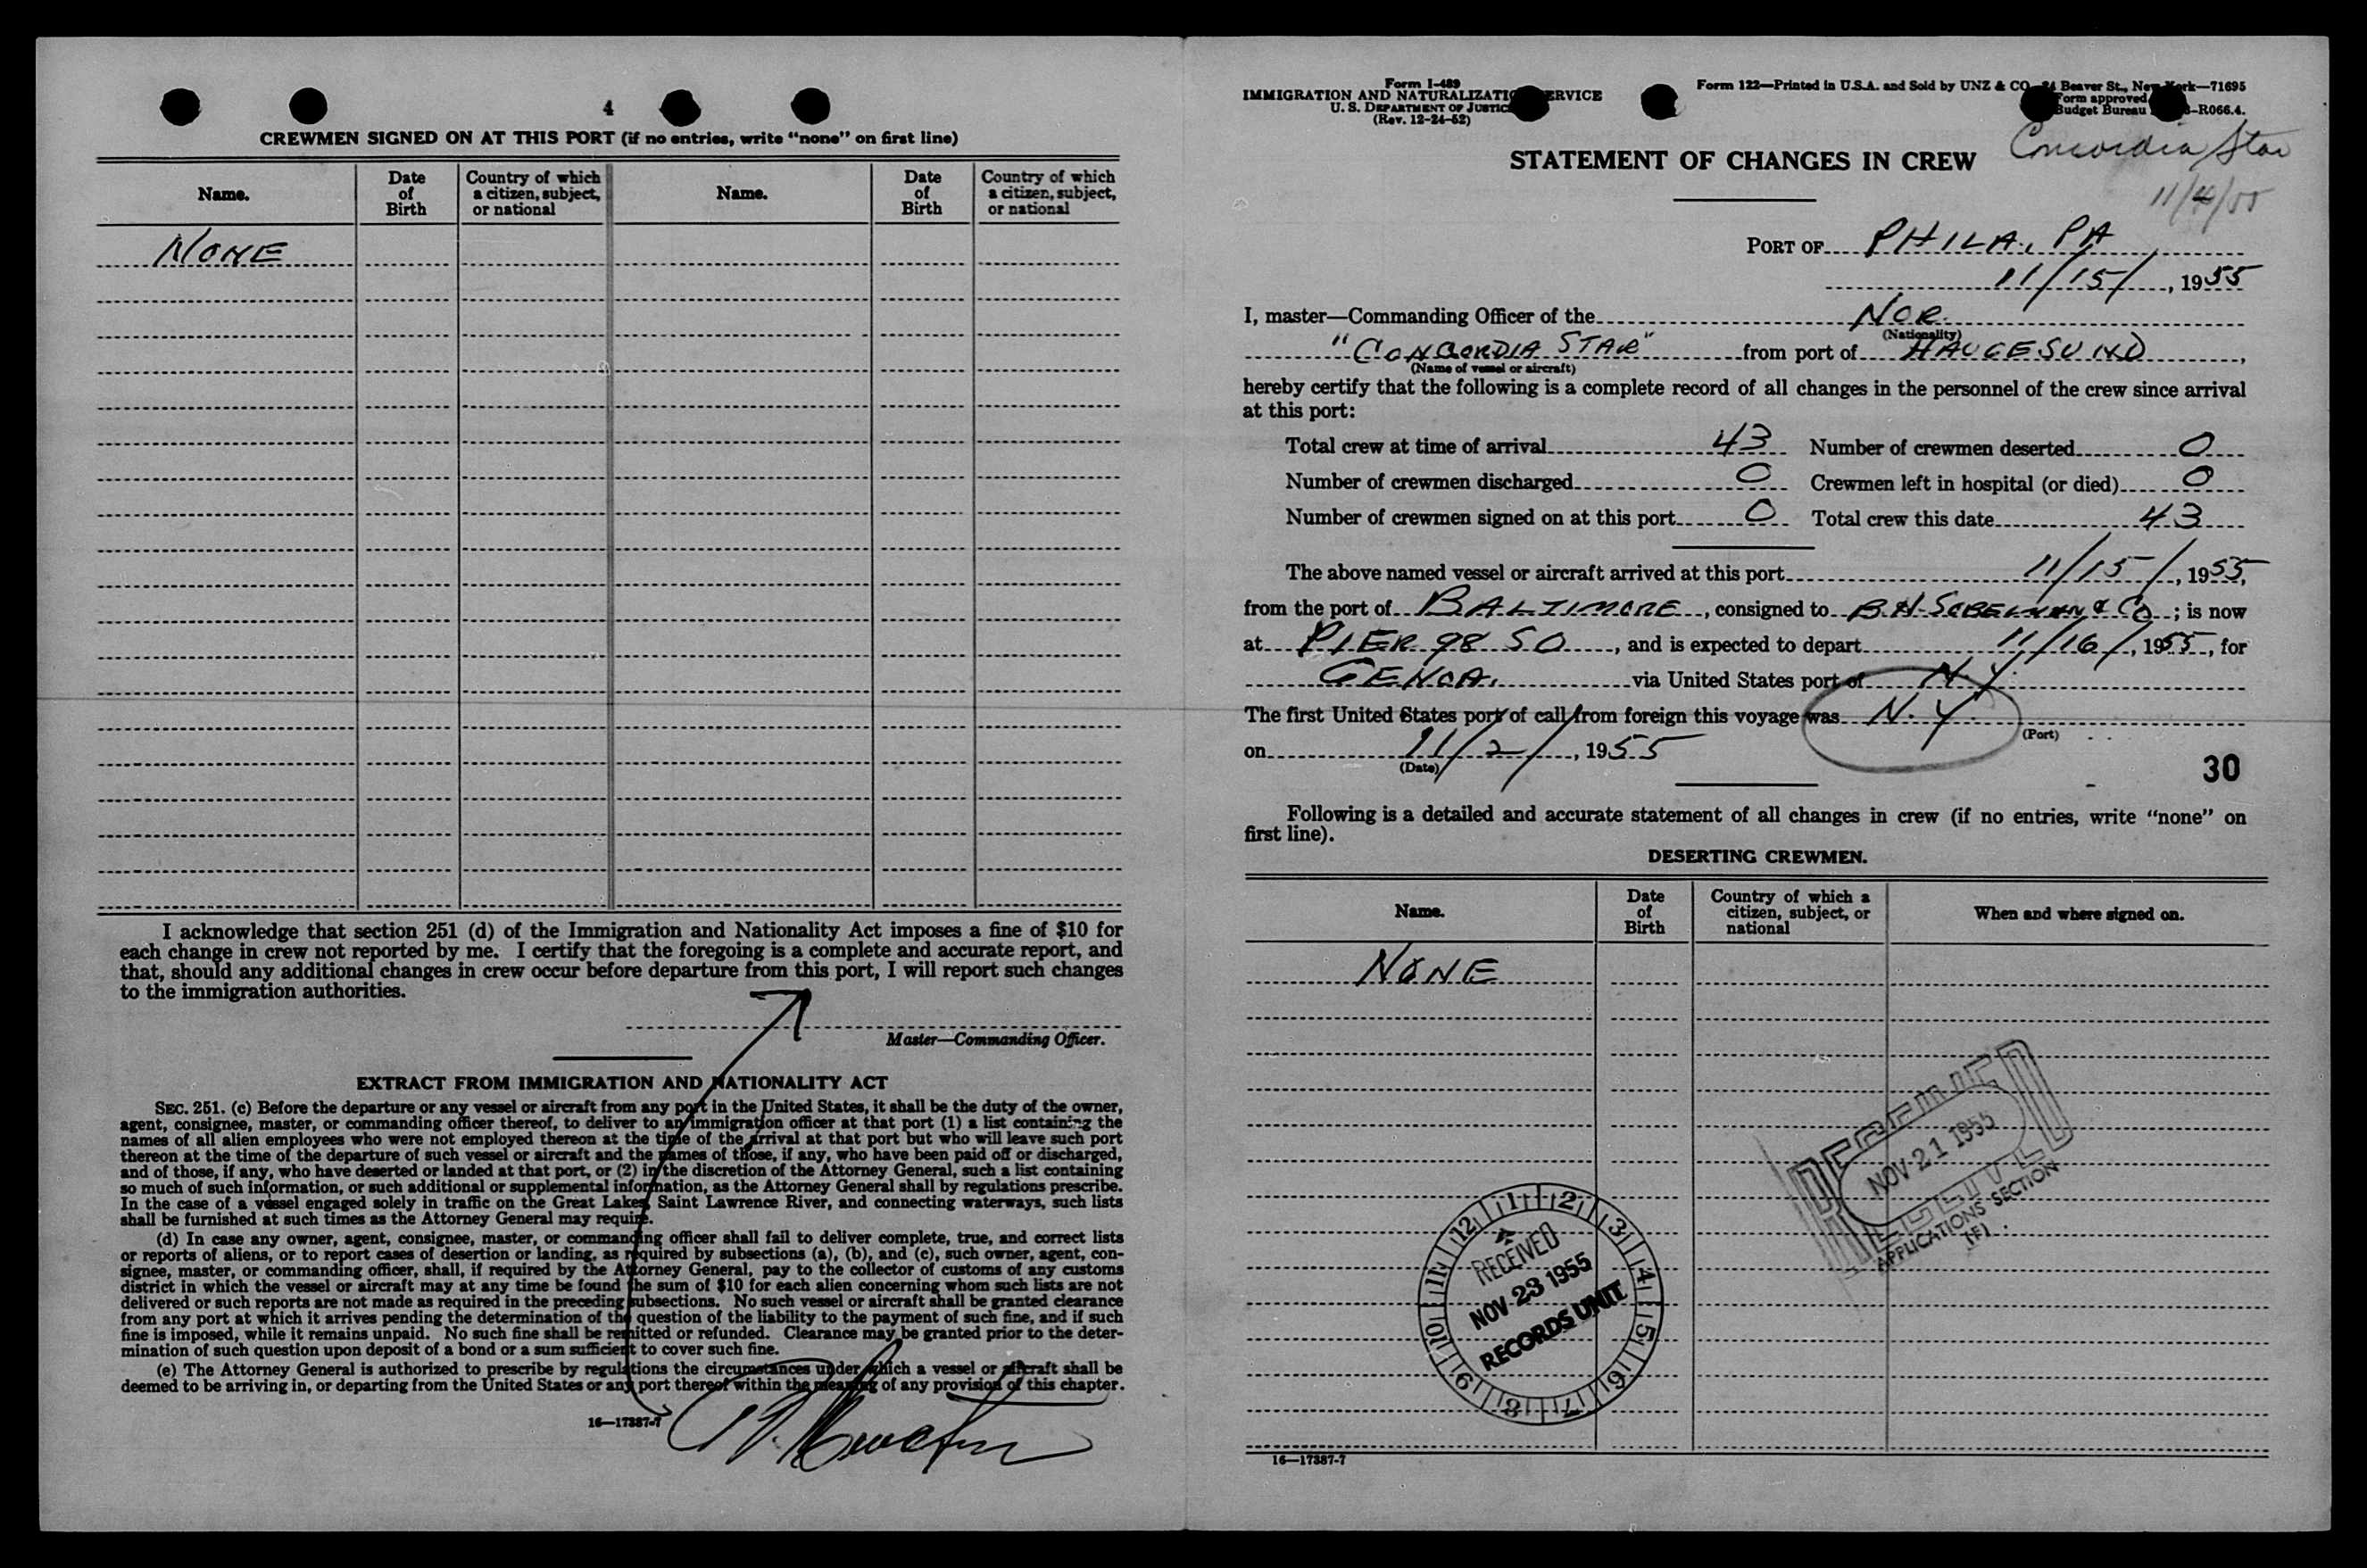 4
CREWMEN SIGNED ON AT THIS PORT (if no entries, write "none" on first line)
Name.
Date of Birth
Country of which a citizen, subject, or national
Name.
Date of Birth
Country of which a citizen, subject, or national
NONE
I acknowledge that section 251 (d) of the Immigration and Nationality Act imposes a fine of $10 for
each change in crew not reported by me. I certify that the foregoing is a complete and accurate report, and
that, should any additional changes in crew occur before departure from this port, I will report such changes
to the immigration authorities.
Master—Commanding Officer.
EXTRACT FROM IMMIGRATION AND NATIONALITY ACT
SEC. 251. (c) Before the departure or any vessel or aircraft from any port in the United States, it shall be the duty of the owner,
agent, consignee, master, or commanding officer thereof, to deliver to an immigration officer at that port (1) a list containing the
names of all alien employees who were not employed thereon at the time of the arrival at that port but who will leave such port
thereon at the time of the departure of such vessel or aircraft and the names of those, if any, who have been paid off or discharged,
and of those, if any, who have deserted or landed at that port, or (2) in the discretion of the Attorney General, such a list containing
so much of such information, or such additional or supplemental information, as the Attorney General shall by regulations prescribe.
In the case of a vessel engaged solely in traffic on the Great Lakes, Saint Lawrence River, and connecting waterways, such lists
shall be furnished at such times as the Attorney General may require.
(d) In case any owner, agent, consignee, master, or commanding officer shall fail to deliver complete, true, and correct lists
or reports of aliens, or to report cases of desertion or landing, as required by subsections (a), (b), and (c), such owner, agent, con-
signee, master, or commanding officer, shall, if required by the Attorney General, pay to the collector of customs of any customs
district in which the vessel or aircraft may at any time be found the sum of $10 for each alien concerning whom such lists are not
delivered or such reports are not made as required in the preceding subsections. No such vessel or aircraft shall be granted clearance
from any port at which it arrives pending the determination of the question of the liability to the payment of such fine, and if such
fine is imposed, while it remains unpaid. No such fine shall be remitted or refunded. Clearance may be granted prior to the deter-
mination of such question upon deposit of a bond or a sum sufficient to cover such fine.
(e) The Attorney General is authorized to prescribe by regulations the circumstances under which a vessel or aircraft shall be
deemed to be arriving in, or departing from the United States or any port thereof within the meaning of any provision of this chapter.
16—17387-7
Form I-489
IMMIGRATION AND NATURALIZATION SERVICE
U. S. DEPARTMENT OF JUSTICE
(Rev. 12-24-52)
Form 122—Printed in U.S.A. and Sold by UNZ & CO. 24 Beaver St., New York—71695
Form approved
Budget Bureau -R066.4.
Concordia Star
11/4/55
STATEMENT OF CHANGES IN CREW
PORT OF PHILA., PA
11/15/, 1955
I, master—Commanding Officer of the NOR.
(Nationality)
"CONCORDIA STAR" from port of HAUGESUND,
(Name of vessel or aircraft)
hereby certify that the following is a complete record of all changes in the personnel of the crew since arrival
at this port:
Total crew at time of arrival 43 Number of crewmen deserted 0
Number of crewmen discharged 0 Crewmen left in hospital (or died) 0
Number of crewmen signed on at this port 0 Total crew this date 43
The above named vessel or aircraft arrived at this port 11/15/, 1955,
from the port of BALTIMORE, consigned to B.H. SOBELMAN & CO; is now
at PIER 98 SO, and is expected to depart 11/16/, 1955, for
GENOA. via United States port of N.Y.
The first United States port of call from foreign this voyage was N.Y.
(Port)
on 11/2/, 1955
(Date)
30
Following is a detailed and accurate statement of all changes in crew (if no entries, write "none" on
first line).
DESERTING CREWMEN.
Name.
Date of Birth
Country of which a citizen, subject, or national
When and where signed on.
NONE
RECEIVED
NOV 21 1955
APPLICATIONS SECTION
(F)
12 1 2 3 4 5 6 7 8 9 10 11
RECEIVED
NOV 23 1955
RECORDS UNIT
16—17387-7